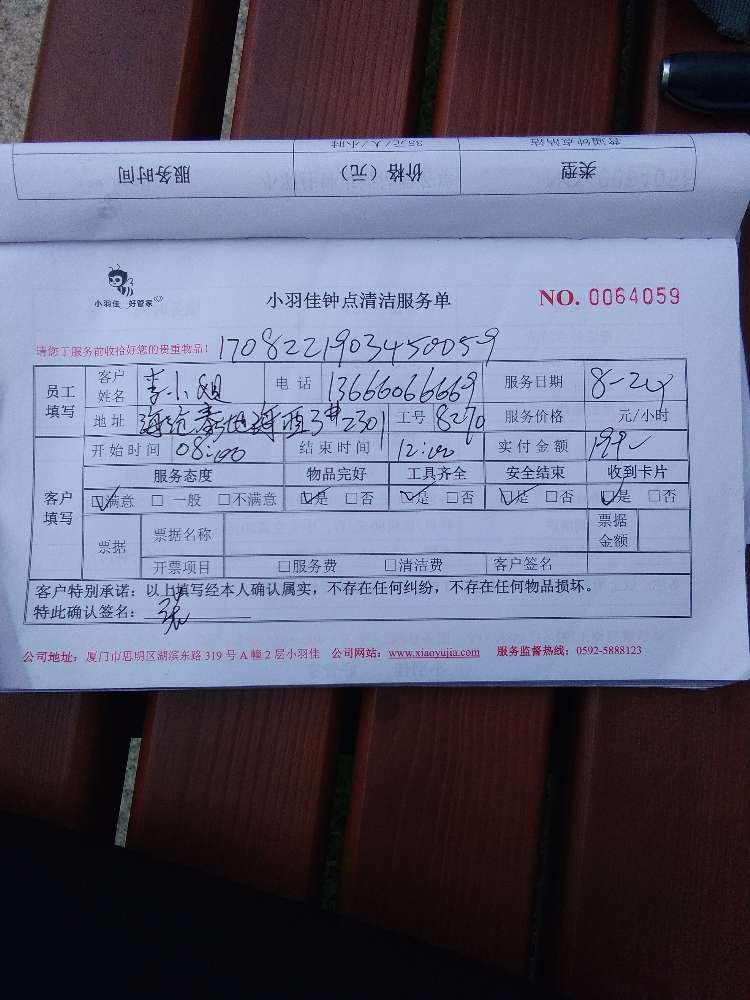 普通钟点清洁 35元/人/小时
类型 价格（元） 服务时间
小羽佳 好管家
小羽佳钟点清洁服务单
NO. 0064059
请您于服务前收拾好您的贵重物品！ 1708221903450059
员工填写
客户姓名 李小姐 电话 13666066669 服务日期 8-24
地址 海沧泰地海西3#2301 工号 8270 服务价格 元/小时
客户填写
开始时间 08:00 结束时间 12:00 实付金额 199
服务态度 物品完好 工具齐全 安全结束 收到卡片
☑满意 □一般 □不满意 ☑是 □否 ☑是 □否 ☑是 □否 ☑是 □否
票据 票据名称 票据金额
开票项目 □服务费 □清洁费 客户签名
客户特别承诺：以上填写经本人确认属实，不存在任何纠纷，不存在任何物品损坏。
特此确认签名： 张
公司地址：厦门市思明区湖滨东路 319 号 A 幢 2 层小羽佳 公司网站：www.xiaoyujia.com 服务监督热线：0592-5888123